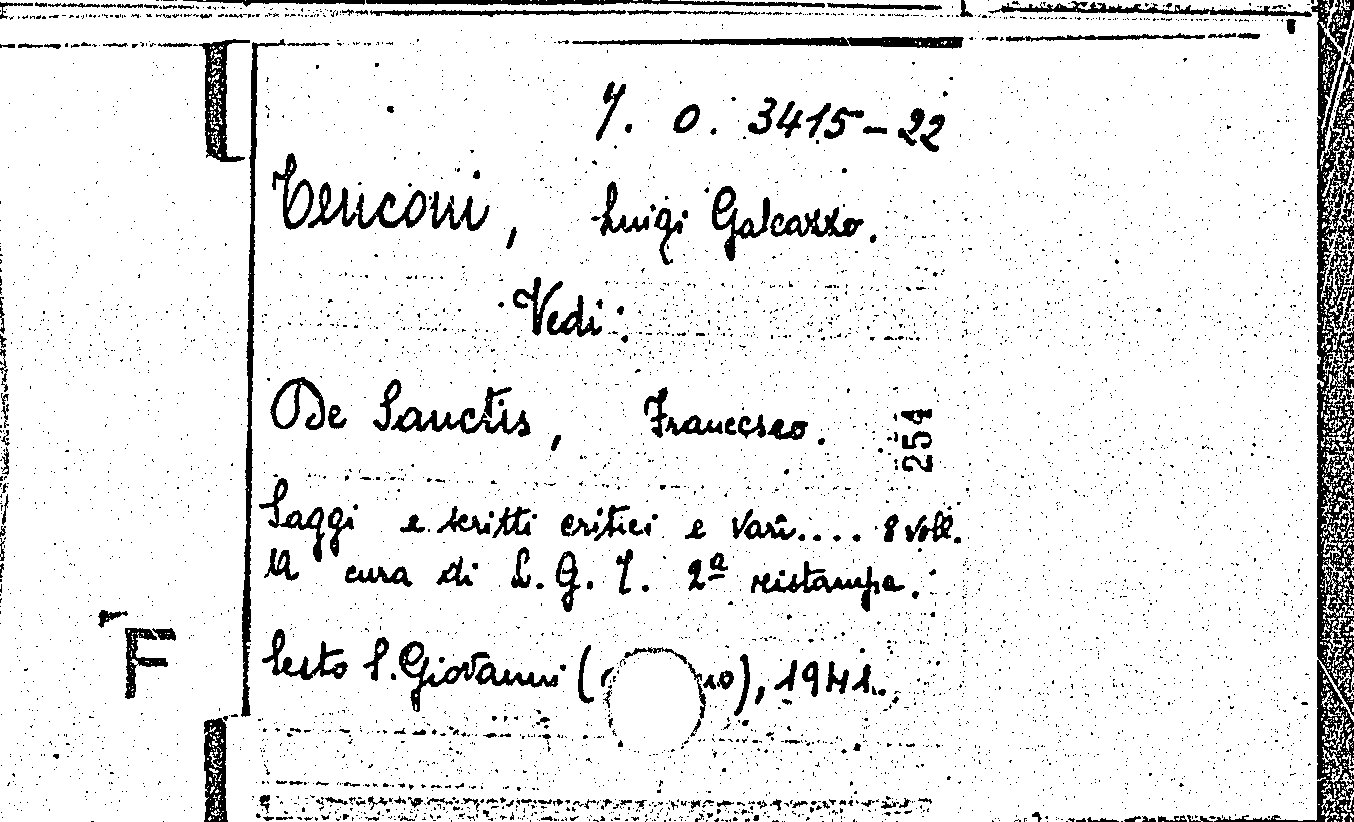 7. O. 3415-22
Tenconi, Luigi Galeazzo.
Vedi:
De Sanctis, Francesco.
254
Saggi e scritti critici e vari.... 8 voll.
A cura di L. G. T. 2ª ristampa.
F
Sesto S. Giovanni ( ), 1941.